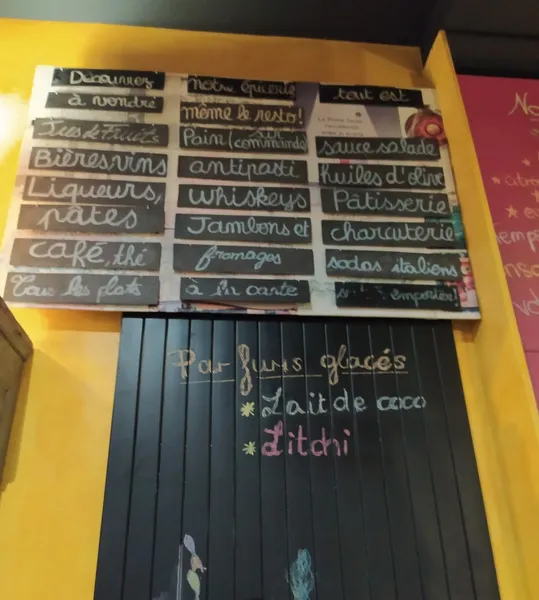 Découvrez notre épicerie tout est
à vendre même le resto!
Jus de Fruits Pain (sur commande) sauce salade
Bières, vins antipasti Huiles d'olive
Liqueurs, whiskeys Pâtisserie
pâtes Jambons et charcuterie
café, thé fromages sodas italiens
Tous les plats à la carte emporter!
Parfums glacés
* Lait de coco
* Litchi
No